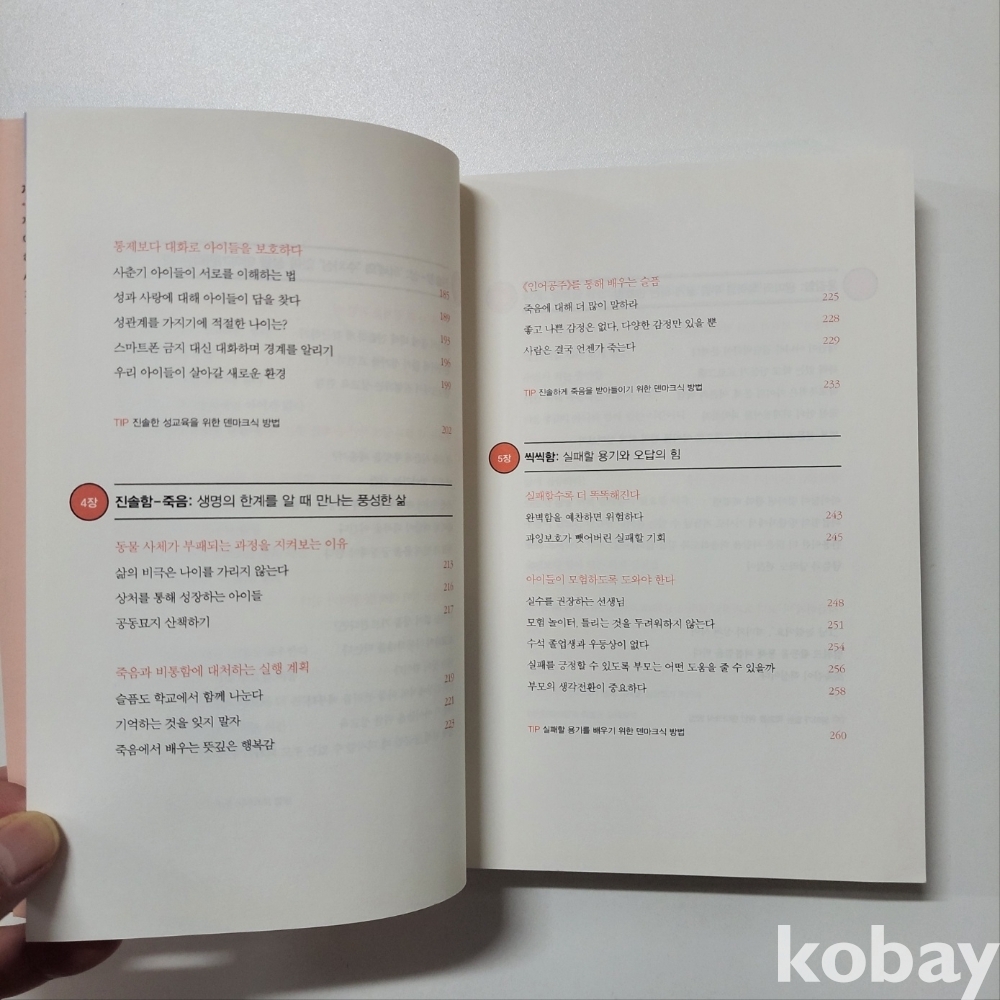 통제보다 대화로 아이들을 보호하다
사춘기 아이들이 서로를 이해하는 법 185
성과 사랑에 대해 아이들이 답을 찾다 189
성관계를 가지기에 적절한 나이는? 193
스마트폰 금지 대신 대화하며 경계를 알리기 196
우리 아이들이 살아갈 새로운 환경 199
TIP 진솔한 성교육을 위한 덴마크식 방법 202
4장 진솔함-죽음: 생명의 한계를 알 때 만나는 풍성한 삶
동물 사체가 부패되는 과정을 지켜보는 이유
삶의 비극은 나이를 가리지 않는다 213
상처를 통해 성장하는 아이들 216
공동묘지 산책하기 217
죽음과 비통함에 대처하는 실행 계획
슬픔도 학교에서 함께 나눈다 219
기억하는 것을 잊지 말자 221
죽음에서 배우는 뜻깊은 행복감 223
《인어공주》를 통해 배우는 슬픔
죽음에 대해 더 많이 말하라 225
좋고 나쁜 감정은 없다, 다양한 감정만 있을 뿐 228
사람은 결국 언젠가 죽는다 229
TIP 진솔하게 죽음을 받아들이기 위한 덴마크식 방법 233
5장 씩씩함: 실패할 용기와 오답의 힘
실패할수록 더 똑똑해진다
완벽함을 예찬하면 위험하다 243
과잉보호가 뺏어버린 실패할 기회 245
아이들이 모험하도록 도와야 한다
실수를 권장하는 선생님 248
모험 놀이터, 틀리는 것을 두려워하지 않는다 251
수석 졸업생과 우등상이 없다 254
실패를 긍정할 수 있도록 부모는 어떤 도움을 줄 수 있을까 256
부모의 생각전환이 중요하다 258
TIP 실패할 용기를 배우기 위한 덴마크식 방법 260
kobay